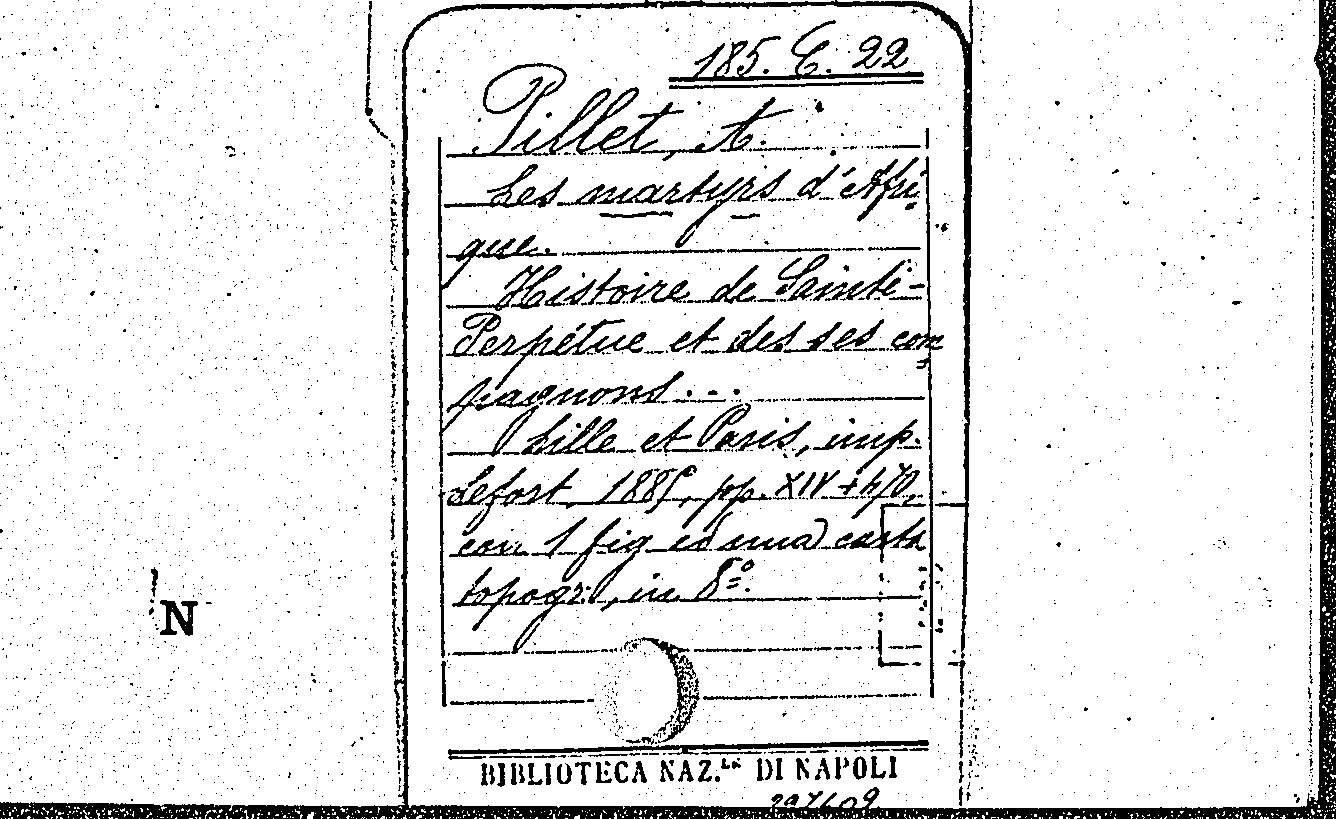 185. C. 22
Pillet, A.
Les martyrs d'Afri
que.
Histoire de Sainte-
Perpétue et des ses com
pagnons...
Lille et Paris, imp.
Lefort, 1885, pp. XIV + 470,
con 1 fig ed una carta
topogr., in 8º.
N
BIBLIOTECA NAZ.LE DI NAPOLI